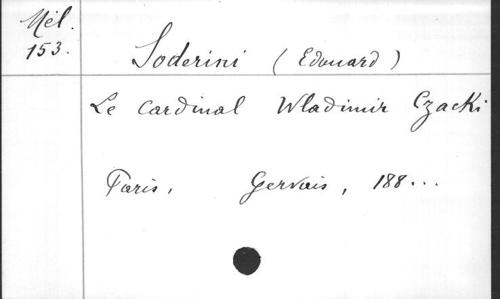 Mél.
153.
Soderini (Edouard)
Le cardinal Wladimir Czacki
Paris, Gervais, 188...